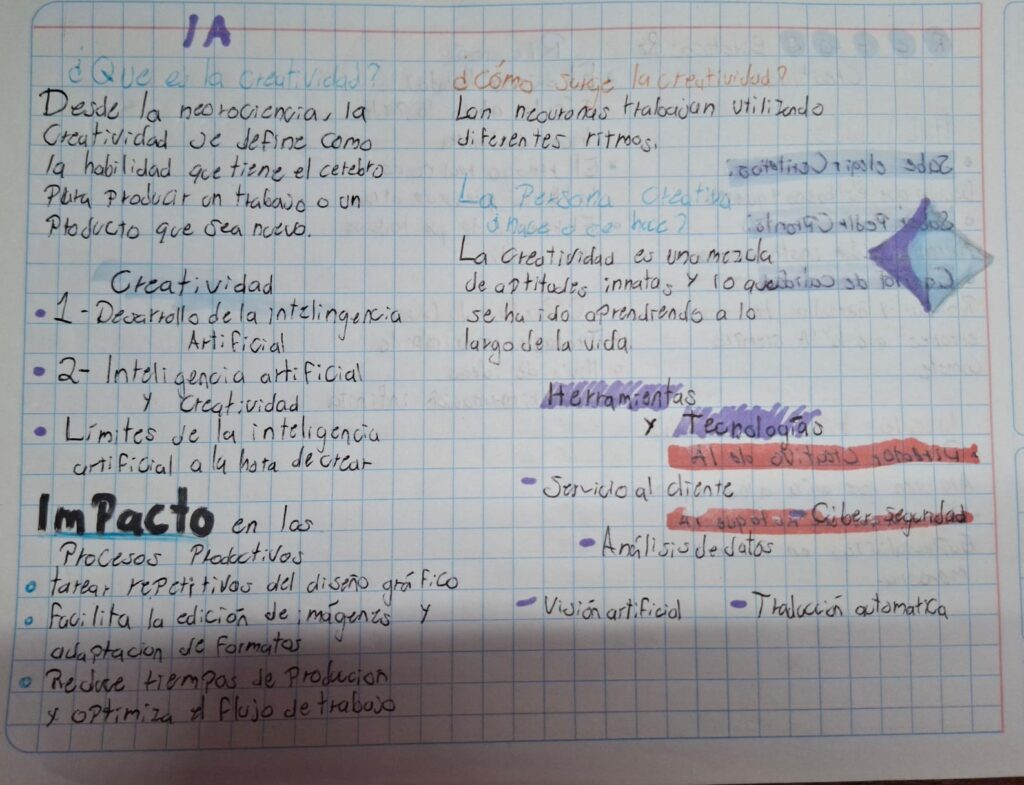 IA
¿Que es la creatividad?
Desde la neurociencia, la
Creatividad se define como
la habilidad que tiene el cerebro
Para producir un trabajo o un
Producto que sea nuevo.
Creatividad
1-Desarrollo de la intelingencia
Artificial
2- Inteligencia artificial
y creatividad
Límites de la inteligencia
artificial a la hora de crear
ImPacto en las
Procesos Productivos
tarear repetitivos del diseño gráfico
Facilita la edición de imágenes y
adaptacion de formatos
Reduce tiempos de Producion
y optimiza el flujo de trabajo
¿Cómo surge la creatividad?
Lan neouronas trabajan utilizando
diferentes ritmos.
La Persona Creativa
¿nace o se hace?
La Creatividad es una mezcla
de aptitudes innatas y lo que
se ha ido aprendiendo a lo
largo de la vida.
Herramientas
y Tecnologías
Servicio al cliente
Ciber seguridad
Análisis de datos
Visión artificial
Traducción automatica